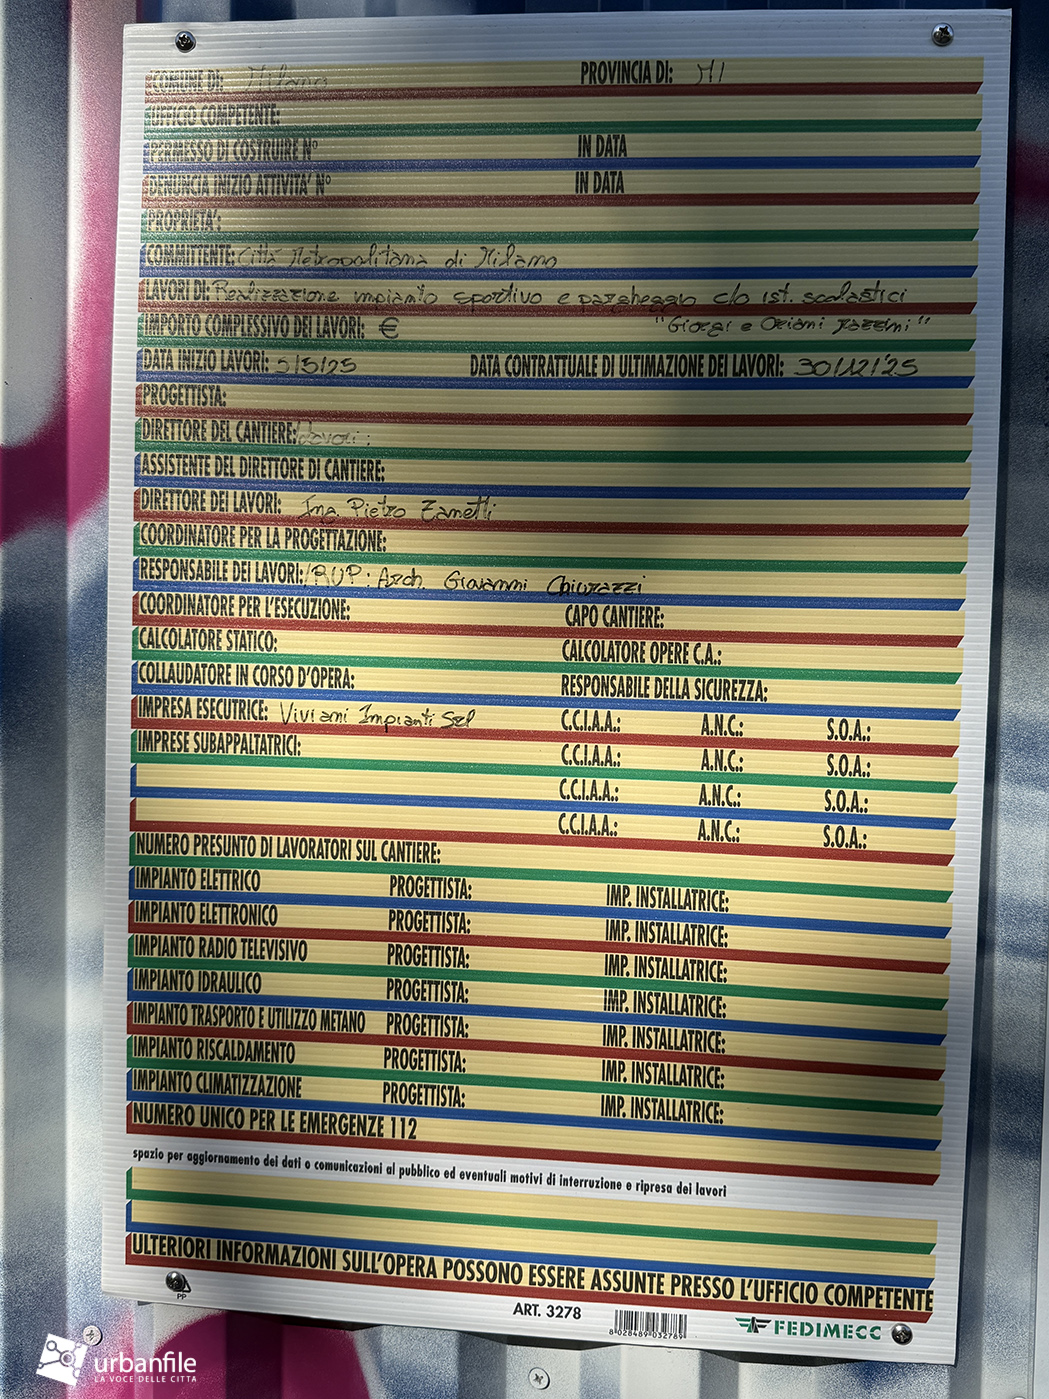 COMUNE DI: Milano PROVINCIA DI: MI
UFFICIO COMPETENTE:
PERMESSO DI COSTRUIRE N° IN DATA
DENUNCIA INIZIO ATTIVITA' N° IN DATA
PROPRIETA':
COMMITTENTE: Città Metropolitana di Milano
LAVORI DI: Realizzazione impianto sportivo e parcheggio c/o ist. scolastici
IMPORTO COMPLESSIVO DEI LAVORI: € "Giorgi e Oriani Mazzini"
DATA INIZIO LAVORI: 5/5/25 DATA CONTRATTUALE DI ULTIMAZIONE DEI LAVORI: 30/12/25
PROGETTISTA:
DIRETTORE DEL CANTIERE:/lavori:
ASSISTENTE DEL DIRETTORE DI CANTIERE:
DIRETTORE DEI LAVORI: Ing. Pietro Zanetti
COORDINATORE PER LA PROGETTAZIONE:
RESPONSABILE DEI LAVORI:/RUP: Arch. Giovanni Chiurazzi
COORDINATORE PER L'ESECUZIONE: CAPO CANTIERE:
CALCOLATORE STATICO: CALCOLATORE OPERE C.A.:
COLLAUDATORE IN CORSO D'OPERA: RESPONSABILE DELLA SICUREZZA:
IMPRESA ESECUTRICE: Viviani Impianti Srl C.C.I.A.A.: A.N.C.: S.O.A.:
IMPRESE SUBAPPALTATRICI: C.C.I.A.A.: A.N.C.: S.O.A.:
C.C.I.A.A.: A.N.C.: S.O.A.:
C.C.I.A.A.: A.N.C.: S.O.A.:
NUMERO PRESUNTO DI LAVORATORI SUL CANTIERE:
IMPIANTO ELETTRICO PROGETTISTA: IMP. INSTALLATRICE:
IMPIANTO ELETTRONICO PROGETTISTA: IMP. INSTALLATRICE:
IMPIANTO RADIO TELEVISIVO PROGETTISTA: IMP. INSTALLATRICE:
IMPIANTO IDRAULICO PROGETTISTA: IMP. INSTALLATRICE:
IMPIANTO TRASPORTO E UTILIZZO METANO PROGETTISTA: IMP. INSTALLATRICE:
IMPIANTO RISCALDAMENTO PROGETTISTA: IMP. INSTALLATRICE:
IMPIANTO CLIMATIZZAZIONE PROGETTISTA: IMP. INSTALLATRICE:
NUMERO UNICO PER LE EMERGENZE 112
spazio per aggiornamento dei dati o comunicazioni al pubblico ed eventuali motivi di interruzione e ripresa dei lavori
ULTERIORI INFORMAZIONI SULL'OPERA POSSONO ESSERE ASSUNTE PRESSO L'UFFICIO COMPETENTE
PP
ART. 3278
8 028489 032789
FEDIMECC
urbanfile
LA VOCE DELLE CITTÀ